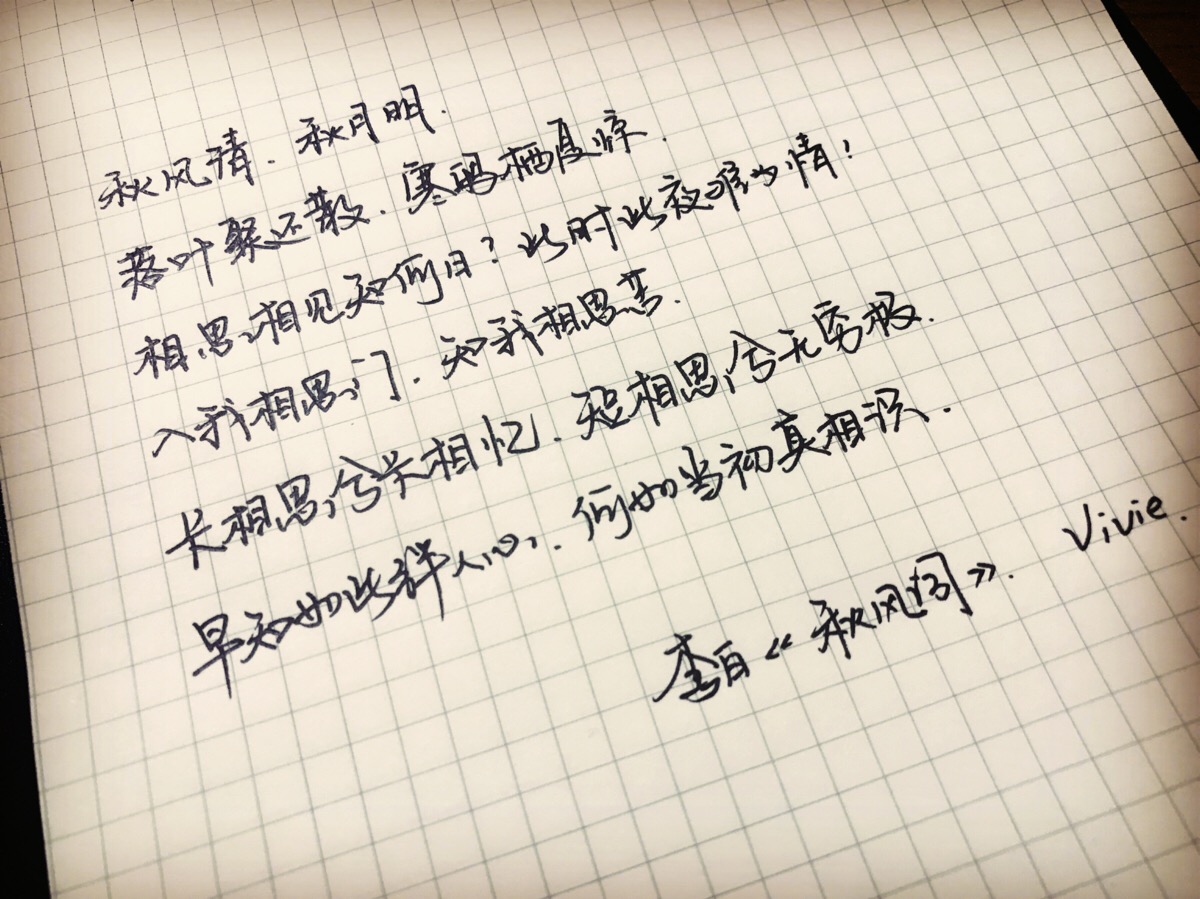 秋风清.秋月明.
落叶聚还散.寒鸦栖复惊.
相思相见知何日?此时此夜难为情!
入我相思门.知我相思苦.
长相思兮长相忆.短相思兮无穷极.
早知如此绊人心.何如当初莫相识.
李白《秋风词》. Vivie.